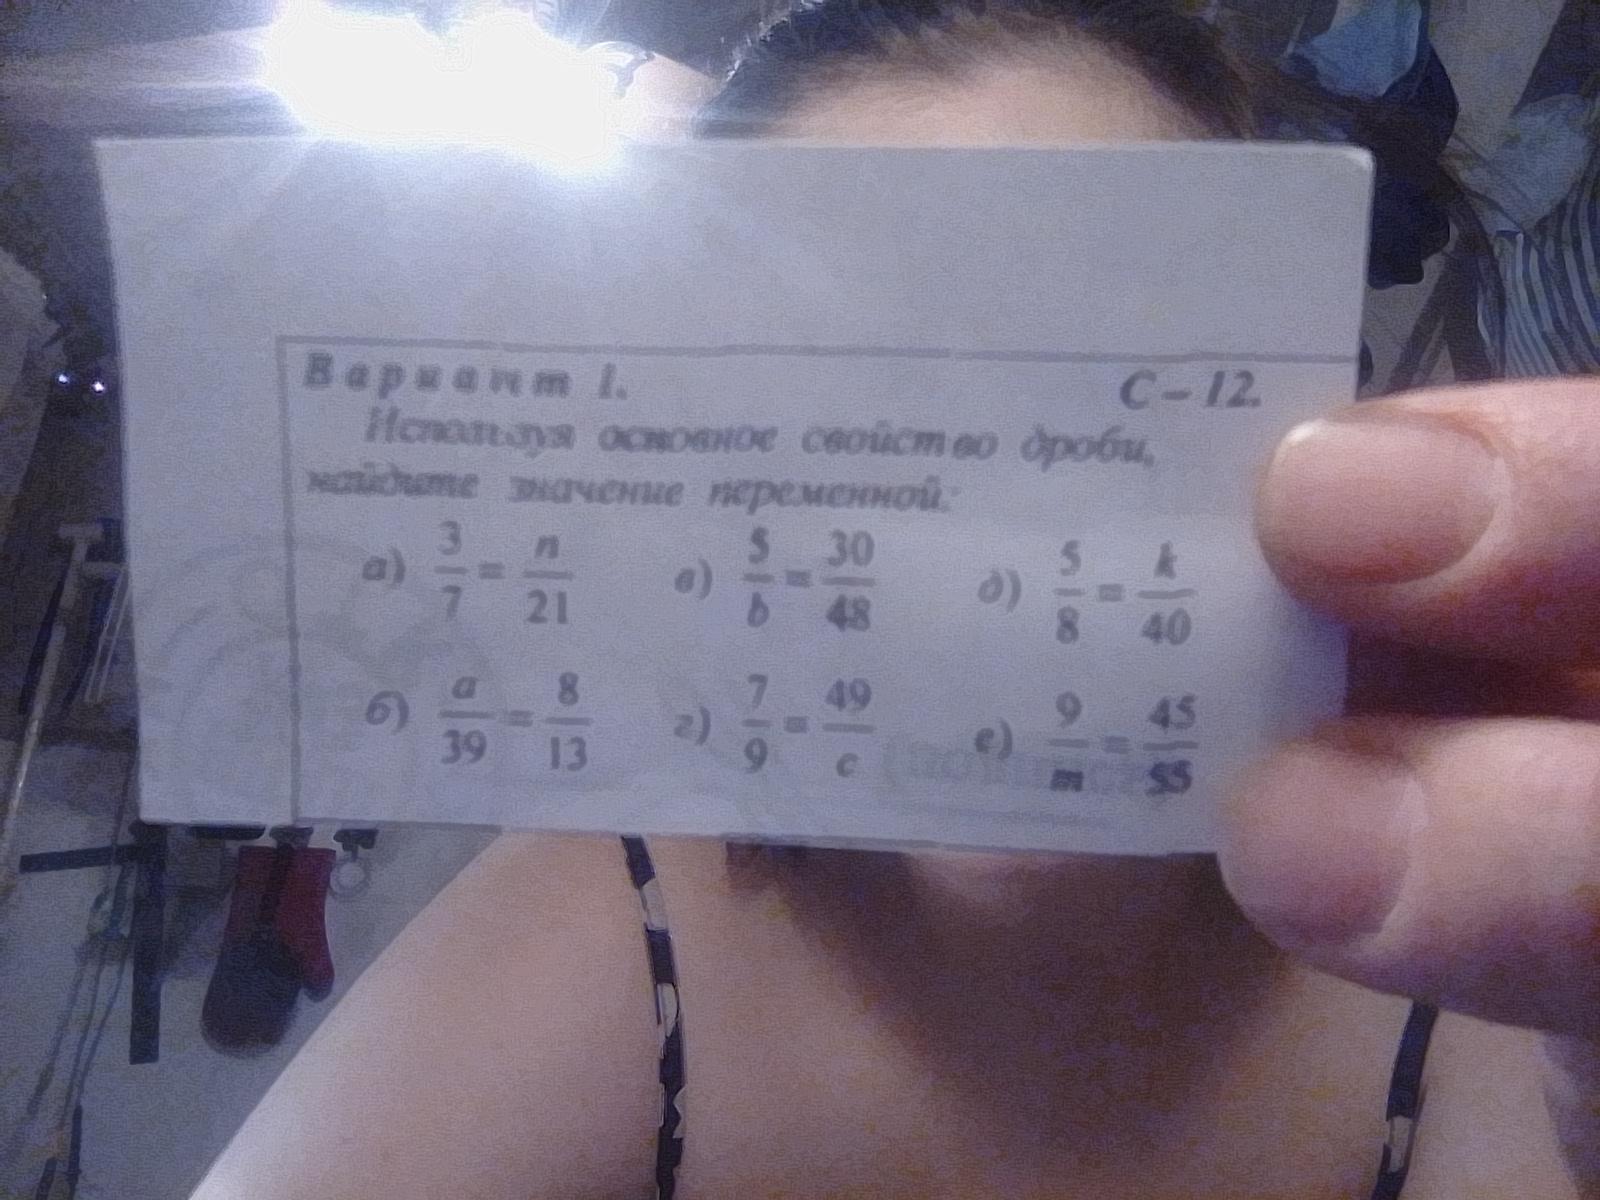 Вариант 1. С – 12.
Используя основное свойство дроби,
найдите значение переменной:
а) 3/7 = n/21 в) 5/b = 30/48 д) 5/8 = k/40
б) a/39 = 8/13 г) 7/9 = 49/c е) 9/m = 45/55